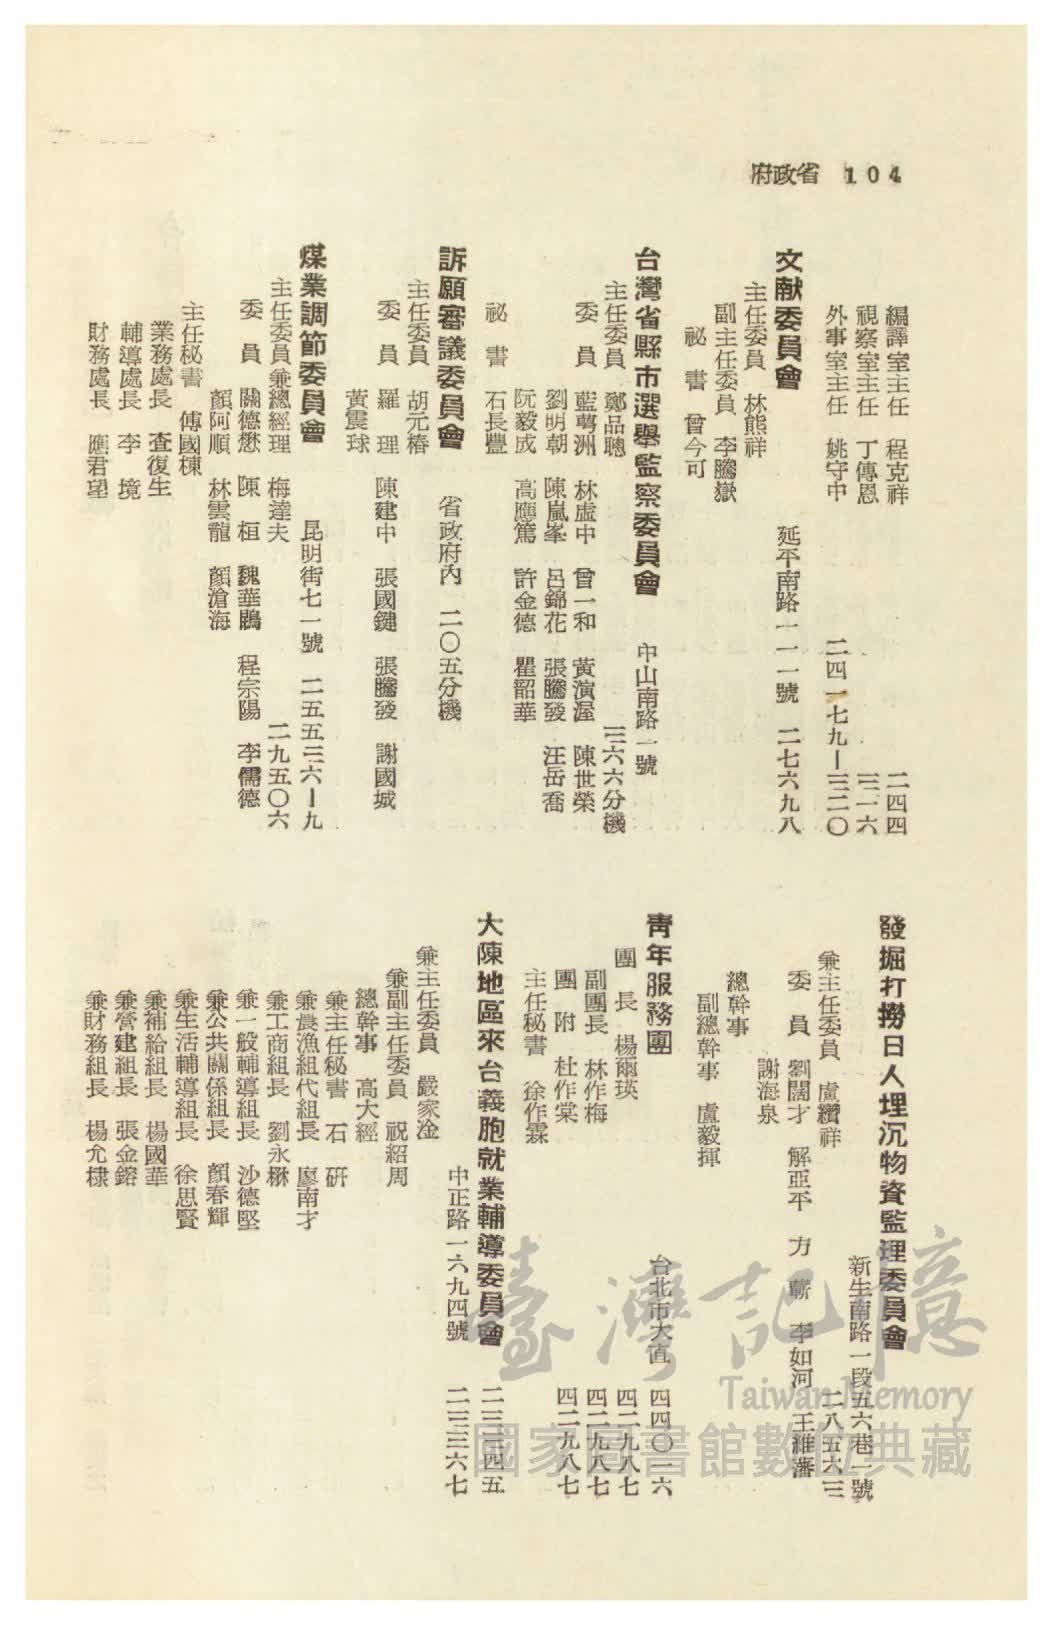 104 省政府
編譯室主任 程克祥 二四四
視察室主任 丁傳恩 三一六
外事室主任 姚守中 二四一七九—三二〇
文献委員會 延平南路一一一號 二七六九八
主任委員 林熊祥
副主任委員 李騰嶽
祕書 曾今可
台灣省縣市選舉監察委員會 中山南路一號
主任委員 鄭品聰 三六六分機
委員 藍蕚洲 林虛中 曾一和 黃演渥 陳世榮
劉明朝 陳嵐峯 呂錦花 張騰發 汪岳喬
阮毅成 高應篤 許金德 瞿韶華
祕書 石長豐
訴願審議委員會 省政府內 二〇五分機
主任委員 胡元椿
委員 羅理 陳建中 張國鍵 張騰發 謝國城
黃震球
煤業調節委員會 昆明街七一號 二五五三六—九
主任委員兼總經理 梅達夫 二九五〇六
委員 關德懋 陳桓 魏華鵾 程宗陽 李儒德
顏阿順 林雲龍 顏滄海
主任秘書 傅國棟
業務處長 查復生
輔導處長 李境
財務處長 應君望
發掘打撈日人埋沉物資監理委員會
新生南路一段五六巷一號
兼主任委員 盧纘祥 二八五六三
委員 劉闊才 解亞平 力蘄 李如河 王維藩
謝海泉
總幹事
副總幹事 盧毅揮
靑年服務團 台北市大直 四四〇一六
團長 楊爾瑛 四二九八七
副團長 林作梅 四二九八七
團附 杜作棠 四二九八七
主任秘書 徐作霖
大陳地區來台義胞就業輔導委員會 二三二四五
中正路一六九四號 二三三六七
兼主任委員 嚴家淦
兼副主任委員 祝紹周
總幹事 高大經
兼主任秘書 石研
兼農漁組代組長 廖南才
兼工商組長 劉永楙
兼一般輔導組長 沙德堅
兼公共關係組長 顏春輝
兼生活輔導組長 徐思賢
兼補給組長 楊國華
兼營建組長 張金鎔
兼財務組長 楊允棣
臺灣記憶
Taiwan Memory
國家圖書館數位典藏